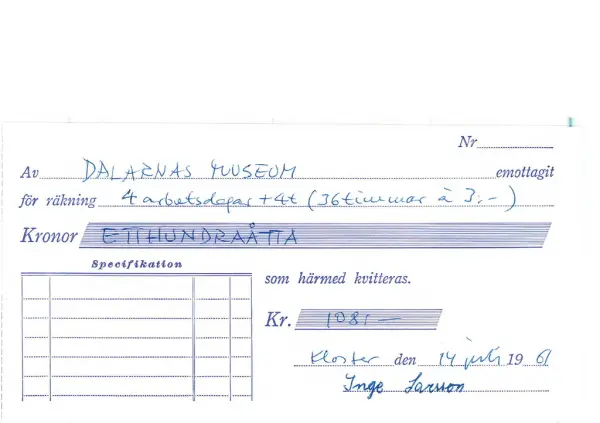 Nr
Av DALARNAS MUSEUM emottagit
för räkning 4 arbetsdagar + 4t (36 timmar à 3:-)
Kronor ETTHUNDRAÅTTA
Specifikation
som härmed kvitteras.
Kr. 108:-
Kloster den 14 juli 1961
Inge Larsson